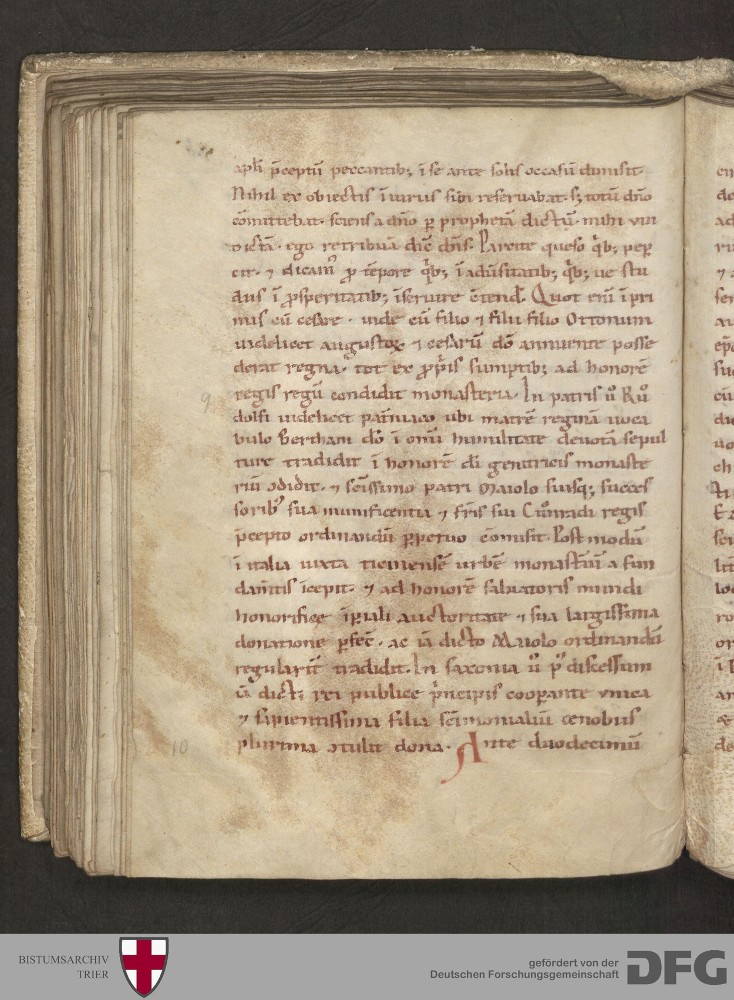 apłi p̄ceptū peccantib; ī se ante solis occasū dimisit·
Nihil ex obiectis īiuriis sibi reseruabat· s; totū dn̄o
cōmittebat· sciens a dn̄o ꝑ prophetā dictū· mihi uin
dictā· ego retribuā dic̄ dn̄s. Parcite queso q̇b; peꝑ
cit· ⁊ dicam̄ ꝓ tēpore q̇b; ī aduſitatib; q̇b; ue stu
dus ī ꝓsperitatib; īseruire c̄tend̄. Quot eni ī pri
mis cū cesare· uide cū filio ⁊ filii filio Ottonum
uidelicet augustoꝝ ⁊ cesarū dō annuente posse
derat regna· tot ex ꝓpriis sumptib; ad honorē
regis regū condidit monasteria· In patris u̇ Ru̇
9
dolfi uidelicet pat̄niaco ubi matrē reginā uoca
bulo Bertham dō ī omī humilitate deuotā sepul
ture tradidit ī honorē dī genitricis monaste
riū ɔdidit· ⁊ scīssimo patri Maiolo suisq; succes
sorib; sua munificentia ⁊ fr̄is sui Cuonradi regis
p̄cepto ordinandū ꝑpetuo c̄misit· Postmodū
ī italia iuxta ticinensē urbē monast̄iū a fun
dam̄tis īcepit· ⁊ ad honorē saluatoris mundi
honorifice īꝑiali auctoritate ⁊ sua largissima
donatione ꝑfec̄· ac iā dicto Maiolo ordinandū
regularit̄ tradidit. In saxonia u̇ p̄ discessum
iā dicti rei publice p̄ncipis cooꝑante unica
⁊ sapientissima filia scīmonialiū cenobiis
10
plurima ɔtulit dona· Ante duodecimū
BISTUMSARCHIV
TRIER
gefördert von der
Deutschen Forschungsgemeinschaft
DFG